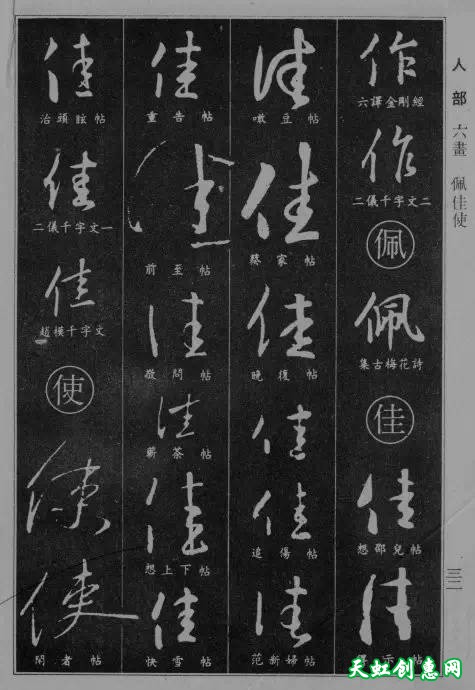 人部 六畫 佩佳使
作
六譯金剛經
作
二儀千字文二
佩
佩
集古梅花詩
佳
佳
想邵兒帖
佳
佳
噉豆帖
佳
蔡家帖
佳
晚復帖
佳
佳
追傷帖
佳
范新婦帖
佳
重告帖
佳
前至帖
佳
敬問帖
佳
蘄茶帖
佳
想上下帖
佳
快雪帖
佳
治頭眩帖
佳
二儀千字文一
佳
趙模千字文
使
使
使
閑者帖
三二
天虹创意网